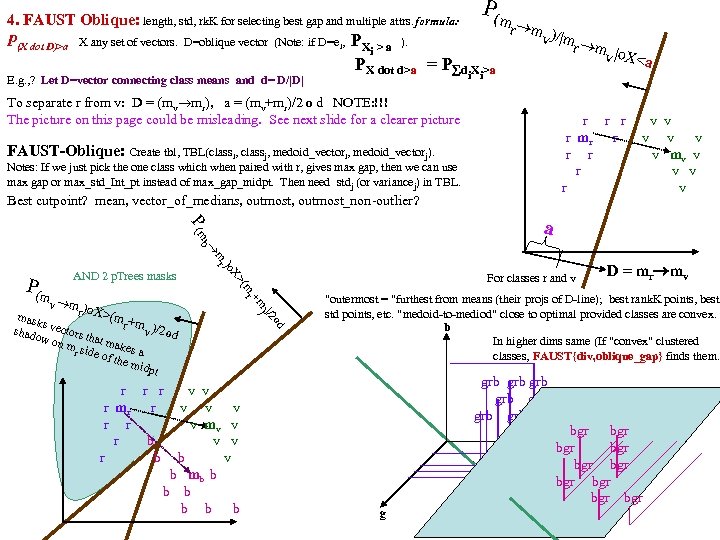 4. FAUST Oblique: length, std, rkK for selecting best gap and multiple attrs. formula:
P(X dot D)>a X any set of vectors. D=oblique vector (Note: if D=ei, PXi > a ).
P(mr→mv)/|mr→mv|oX<a
PX dot d>a = P∑diXi>a
E.g.,? Let D=vector connecting class means and d= D/|D|
To separate r from v: D = (mv→mr), a = (mv+mr)/2 o d NOTE:!!!
The picture on this page could be misleading. See next slide for a clearer picture
FAUST-Oblique: Create tbl, TBL(classi, classj, medoid_vectori, medoid_vectorj).
Notes: If we just pick the one class which when paired with r, gives max gap, then we can use
max gap or max_std_Int_pt instead of max_gap_midpt. Then need stdj (or variancej) in TBL.
Best cutpoint? mean, vector_of_medians, outmost, outmost_non-outlier?
r r r v v
r mr r v v v
r r v mv v
r v v
r v
a
For classes r and v D = mr→mv
P(mb→mr)oX>(mr+m)/2od
AND 2 pTrees masks
P(mv→mr)oX>(mr+mv)/2od
masks vectors that makes a
shadow on mr side of the midpt
"outermost = "furthest from means (their projs of D-line); best rankK points, best
std points, etc. "medoid-to-mediod" close to optimal provided classes are convex.
b
In higher dims same (If "convex" clustered
classes, FAUST{div,oblique_gap} finds them.
r r r v v
r mr r v v v
r r v mv v
r b v v
r b b v
b mb b
b b
b b b
grb grb grb
grb
grb
bgr bgr
bgr bgr
bgr bgr
bgr bgr
bgr bgr
g